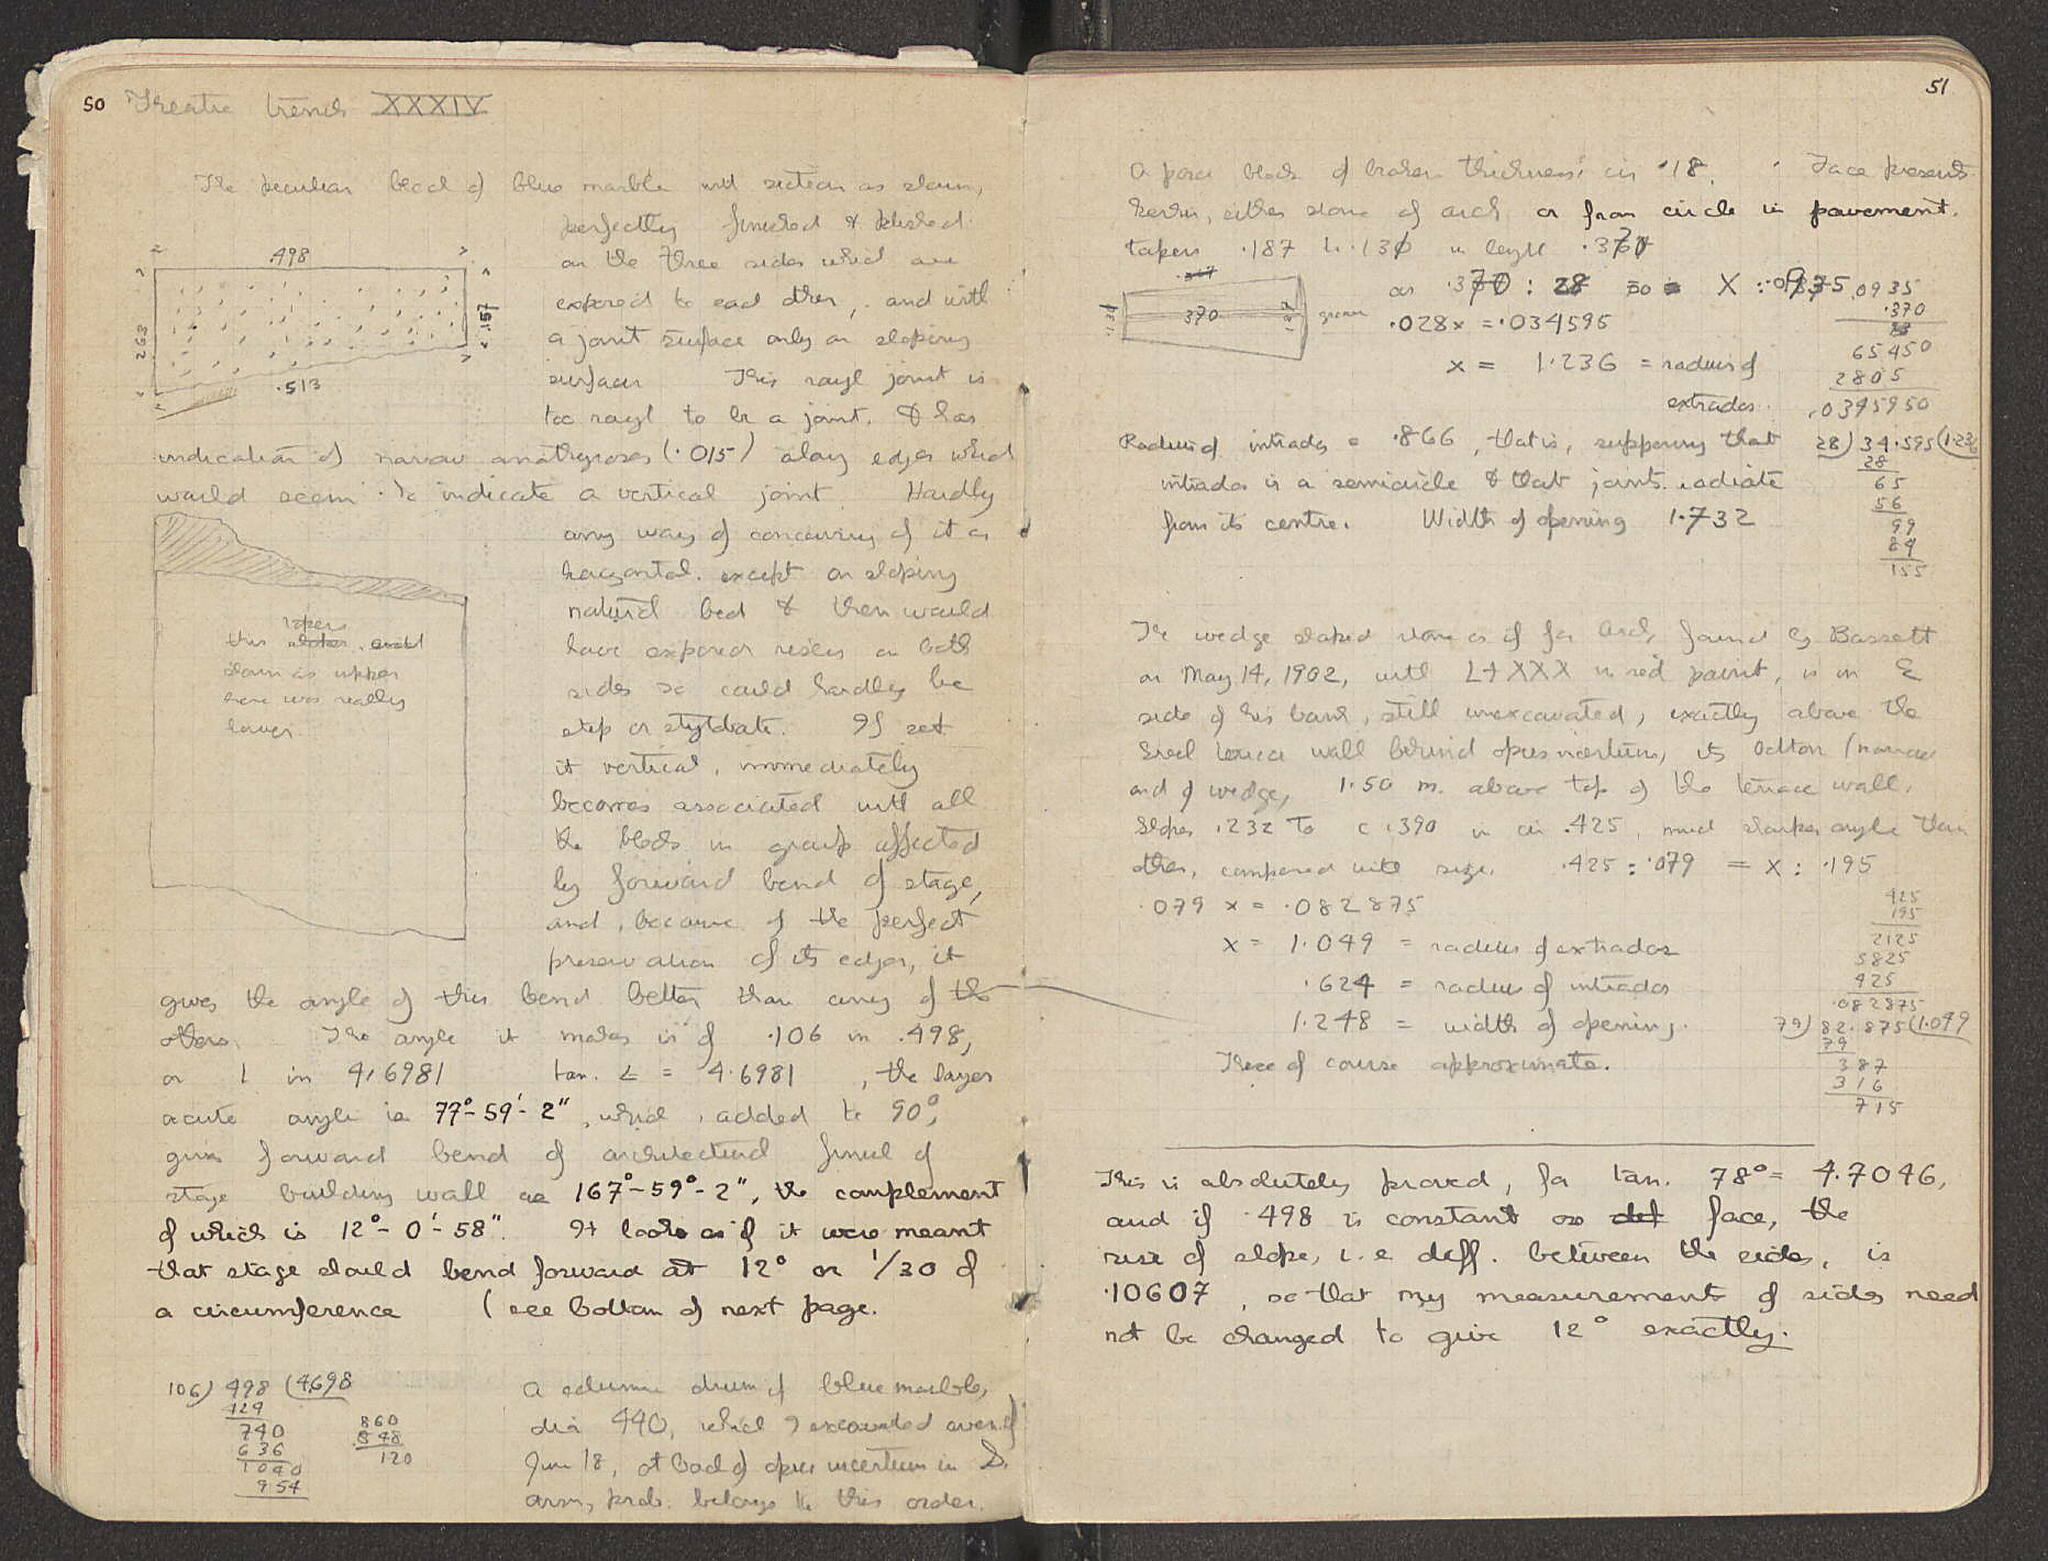 50 Theatre trench XXXIV
The peculiar block of blue marble with section as shown,
perfectly finished & polished
on the three sides which are
exposed to each other, and with
a joint surface only on sloping
surface This rough joint is
too rough to be a joint. & has
indication of narrow anathyroses (.015) along edges which
would seem to indicate a vertical joint Hardly
any way of conceiving of it as
horizontal. except on sloping
natural bed & then would
have exposed risers on both
sides so could hardly be
step or stylobate. If set
it vertical, immediately
becomes associated with all
the blocks in group affected
by forward bend of stage,
and, because of the perfect
preservation of its edges, it
gives the angle of this bend better than any of the
others. The angle it makes is of .106 in .498,
or 1 in 4.6981 tan. ∠ = 4.6981, the larger
acute angle is 77°-59'-2", which, added to 90°,
gives forward bend of architectural finish of
stage building wall as 167°-59°-2", the complement
of which is 12°-0'-58". It looks as if it were meant
that stage should bend forward at 12° or 1/30 of
a circumference (see bottom of next page.
.498
.263
.157
.513
this upper end
shown as upper
here was really
lower
106) 498 (4.698
424
740
636
1040
954
860
848
120
A column drum of blue marble,
dia 440, which I excavated
Jun 18, at back of opus incertum in S.
arm, prob. belongs to this order.
51
A poros block of broken thickness, is .18. Face presents
either stone of arch or from circle in pavement.
tapers .187 to .130 in length .370
370
.187
groove
as .370 : 28 so X : .0935
.028x = .034595
x = 1.236 = radius of
extrados.
.0935
.370
65450
2805
.0345950
Radius of intrados = .866, that is, supposing that
intrados is a semicircle & that joints radiate
from its centre. Width of opening 1.732
28) 34.595 (1.236
28
65
56
99
84
155
The wedge shaped stone as if for arch, found by Bassett
on May 14, 1902, with L+XXX in red paint, is on E
side of his bank, still unexcavated, exactly above the
terrace wall behind opus incertum, its bottom (narrow
end of wedge, 1.50 m. above top of the terrace wall.
Slopes .232 to c .390 in .425, much sharper angle than
other, compared with size. .425 : .079 = x : .195
.079 x = .082875
x = 1.049 = radius of extrados
.624 = radius of intrados
1.248 = width of opening.
These of course approximate.
425
195
2125
3825
425
.082875
79) 82.875 (1.049
79
387
316
715
This is absolutely proved, for tan. 78° = 4.7046,
and if .498 is constant as face, the
rise of slope, i.e diff. between the sides, is
.10607, so that my measurements of sides need
not be changed to give 12° exactly.